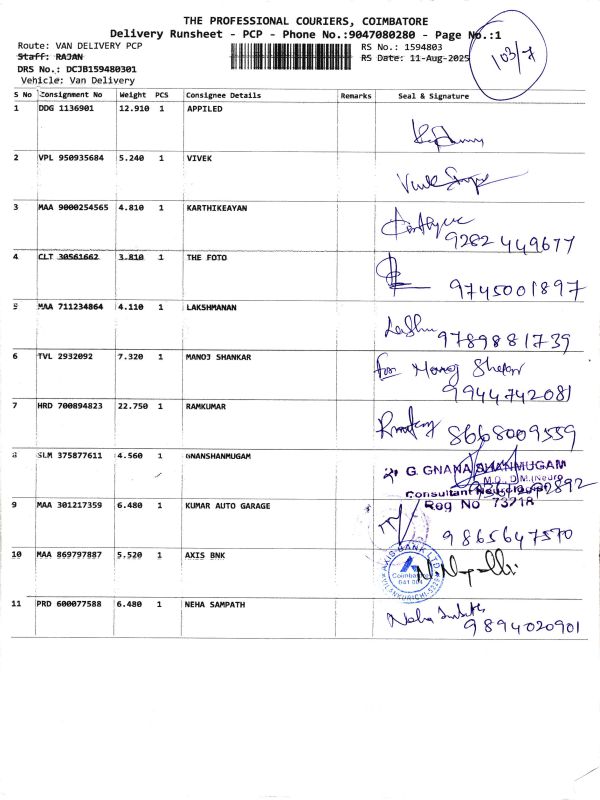 THE PROFESSIONAL COURIERS, COIMBATORE
Delivery Runsheet - PCP - Phone No.:9047080280 - Page No.:1
Route: VAN DELIVERY PCP
RS No.: 1594803
103/7
Staff: RAJAN
RS Date: 11-Aug-2025
DRS No.: DCJB159480301
Vehicle: Van Delivery
S No Consignment No Weight PCS Consignee Details Remarks Seal & Signature
1 DDG 1136901 12.910 1 APPILED
2 VPL 950935684 5.240 1 VIVEK
Vivek
3 MAA 9000254565 4.810 1 KARTHIKEAYAN
9282 449677
4 CLT 30561662 3.810 1 THE FOTO
9745001897
5 MAA 711234864 4.110 1 LAKSHMANAN
9789881739
6 TVL 2932092 7.320 1 MANOJ SHANKAR
9944742081
7 HRD 700894823 22.750 1 RAMKUMAR
8668009559
8 SLM 375877611 4.560 1 GNANSHANMUGAM
G. GNANA SHANMUGAM
M.D., D.M.(Neuro
Consultant Neurologist
Reg No 73218
9 MAA 301217359 6.480 1 KUMAR AUTO GARAGE
9865647570
10 MAA 869797887 5.520 1 AXIS BNK
AXIS BANK LTD
Coimbatore
11 PRD 600077588 6.480 1 NEHA SAMPATH
Neha
9894020901